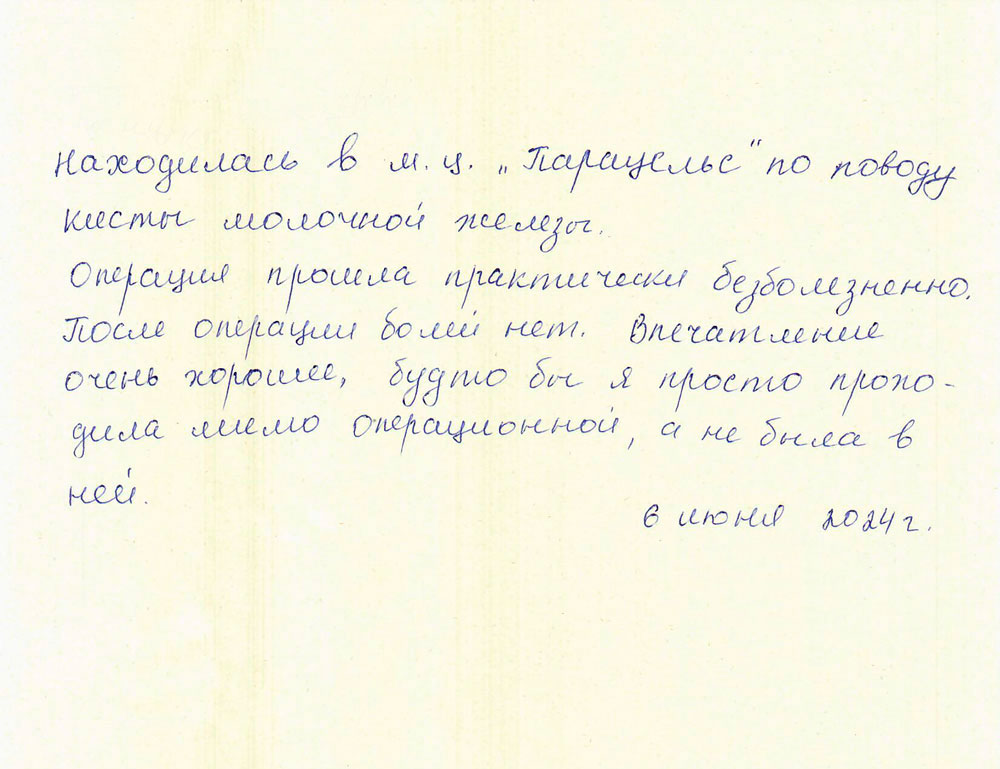 Находилась в м.ц. „Парацельс" по поводу
кисты молочной железы.
Операция прошла практически безболезненно.
После операции болей нет. Впечатление
очень хорошее, будто бы я просто прохо-
дила мимо операционной, а не была в
ней.
6 июня 2024 г.